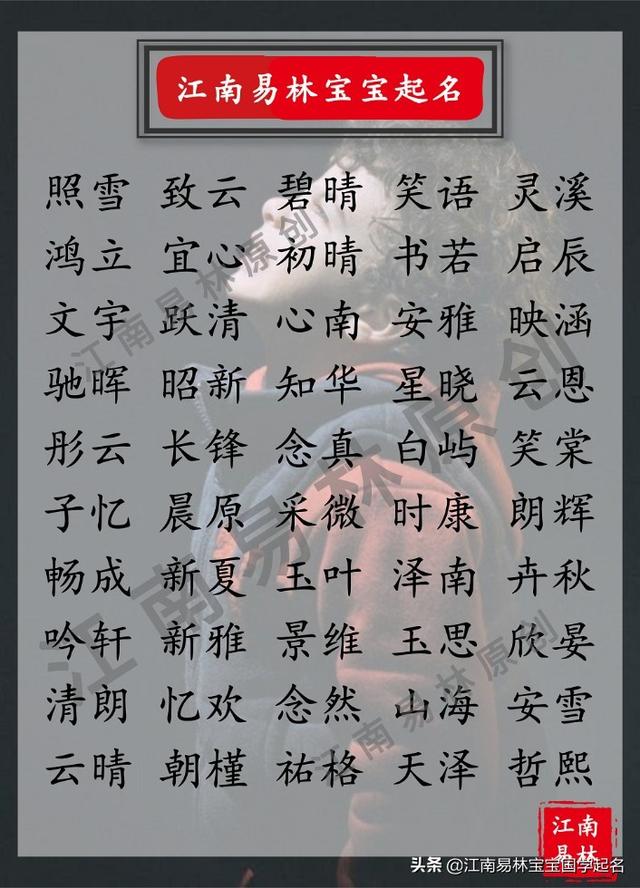 江南易林宝宝起名
照雪 致云 碧晴 笑语 灵溪
鸿立 宜心 初晴 书若 启辰
文宇 跃清 心南 安雅 映涵
驰晖 昭新 知华 星晓 云恩
彤云 长锋 念真 白屿 笑棠
子忆 晨原 采微 时康 朗辉
畅成 新夏 玉叶 泽南 卉秋
吟轩 新雅 景维 玉思 欣晏
清朗 忆欢 念然 山海 安雪
云晴 朝槿 祐格 天泽 哲熙
江南易林原创
江南易林原创
江南易林原创
江南
易林
头条 @江南易林宝宝国学起名